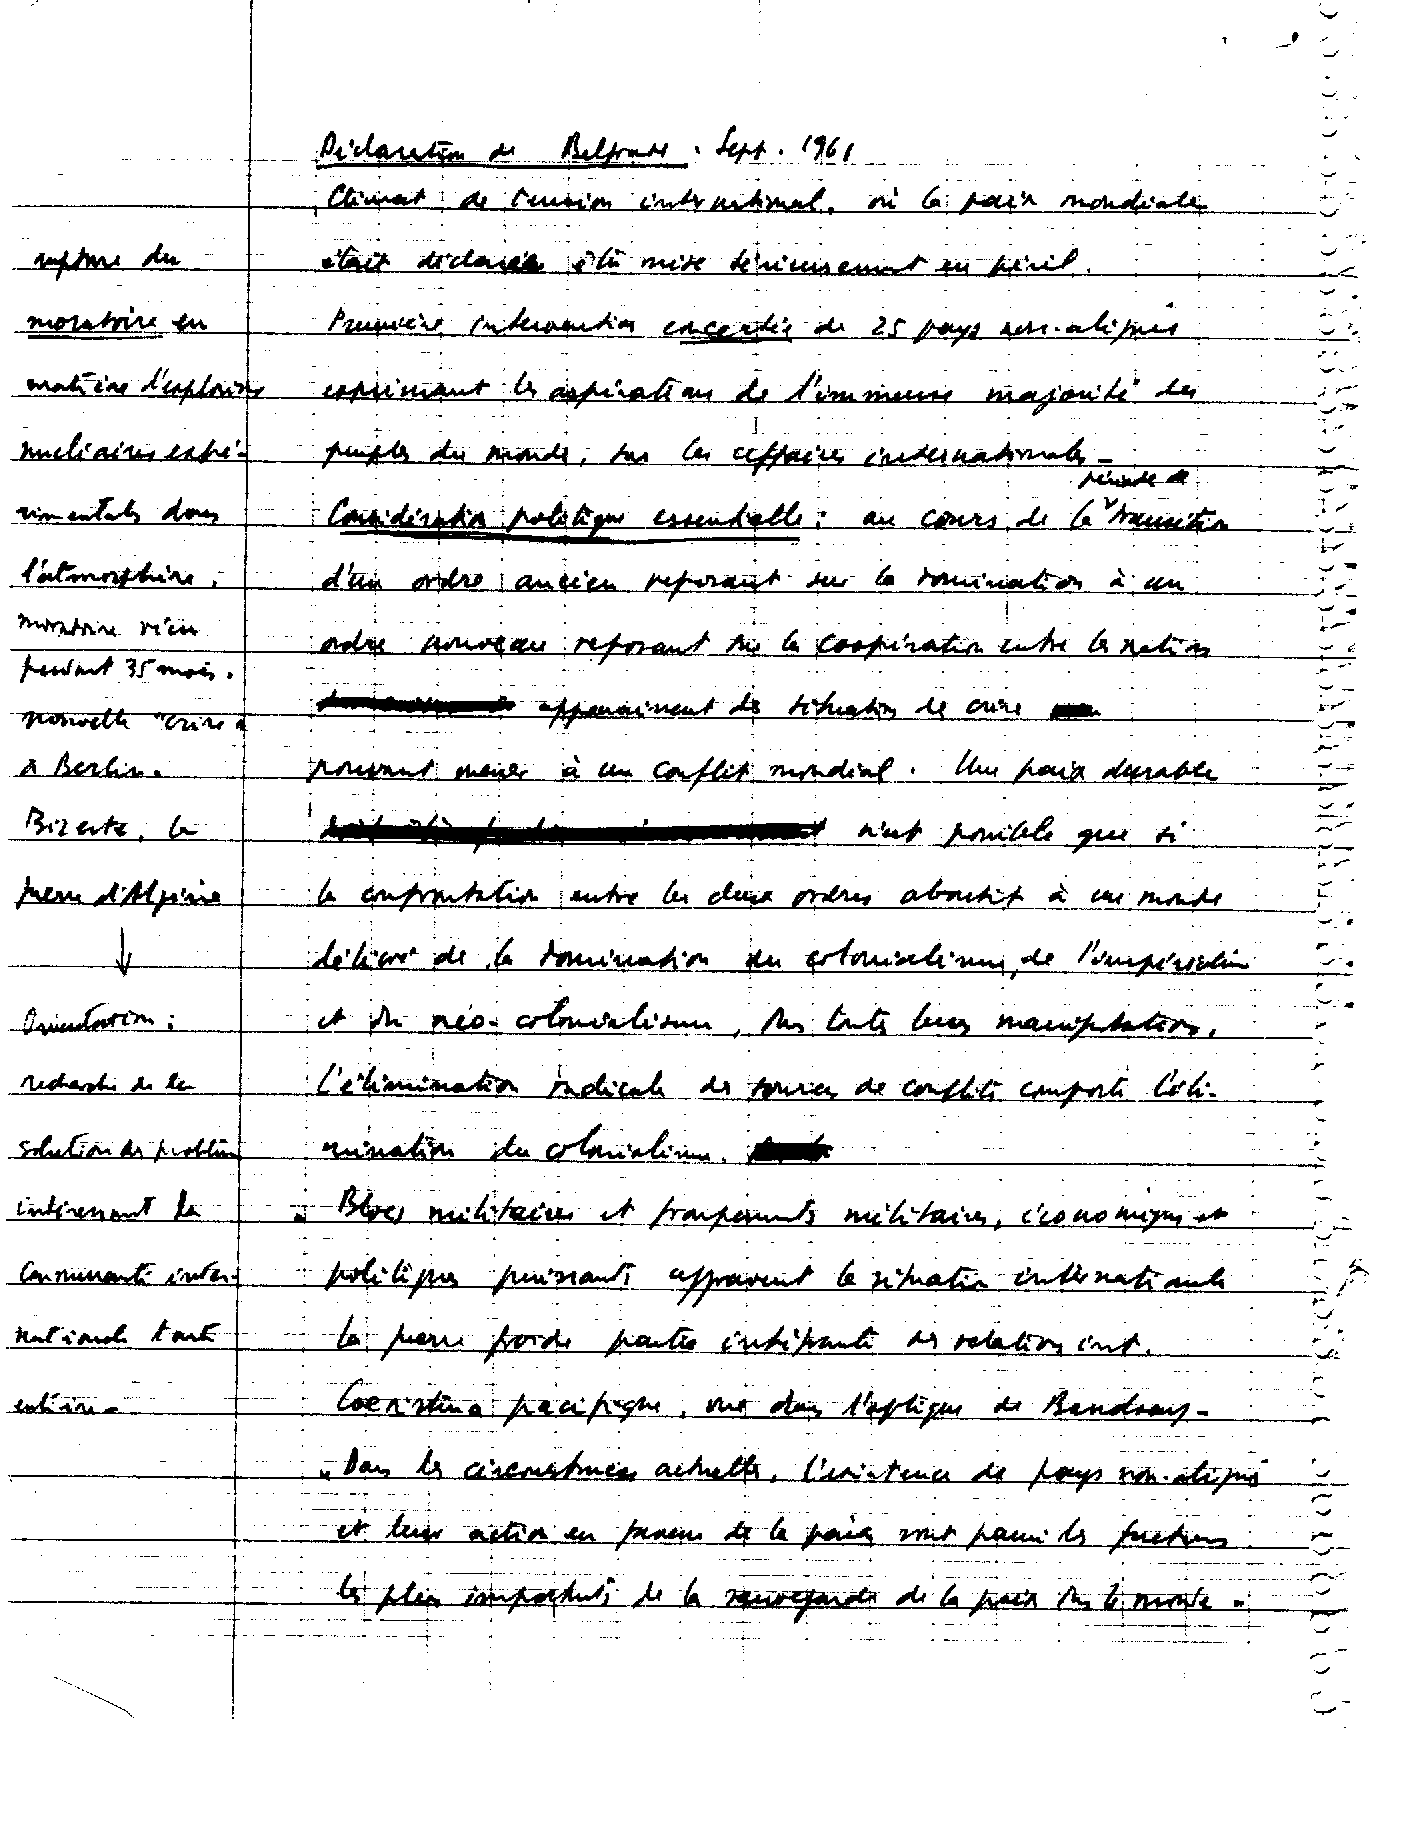 Déclaration de Belgrade. Sept. 1961
Climat de tension international, où la paix mondiale
était déclarée être mise sérieusement en péril.
Première intervention concertée de 25 pays non-alignés
exprimant les aspirations de l'immense majorité des
peuples du monde, sur les affaires internationales-
période de
Considération politique essentielle : au cours de la transition
d'un ordre ancien reposant sur la domination à un
ordre nouveau reposant sur la coopération entre les nations
apparaissent des situations de crise
pouvant mener à un conflit mondial. Une paix durable
n'est possible que si
la confrontation entre les deux ordres aboutit à un monde
délivré de la domination du colonialisme, de l'impérialisme
et du néo-colonialisme, ds toutes leurs manifestations.
L'élimination radicale des sources de conflits comporte l'éli-
mination du colonialisme.
- Blocs militaires et groupements militaires, économiques et
politiques puissants aggravent la situation internationale
La guerre froide partie intégrante des relations int.
Coexistence pacifique, vue dans l'optique de Bandoung-
"Dans les circonstances actuelles, l'existence de pays non-alignés
et leur action en faveur de la paix sont parmi les facteurs
les plus importants de la sauvegarde de la paix ds le monde"
rupture du
moratoire en
matière d'explosions
nucléaires expé-
rimentales dans
l'atmosphère.
moratoire
pendant 35 mois.
nouvelle "crise"
à Berlin.
Bizerte, la
guerre d'Algérie
↓
Orientation :
recherche de la
solution des problèmes
intéressant la
Communauté inter-
nationale toute
entière-